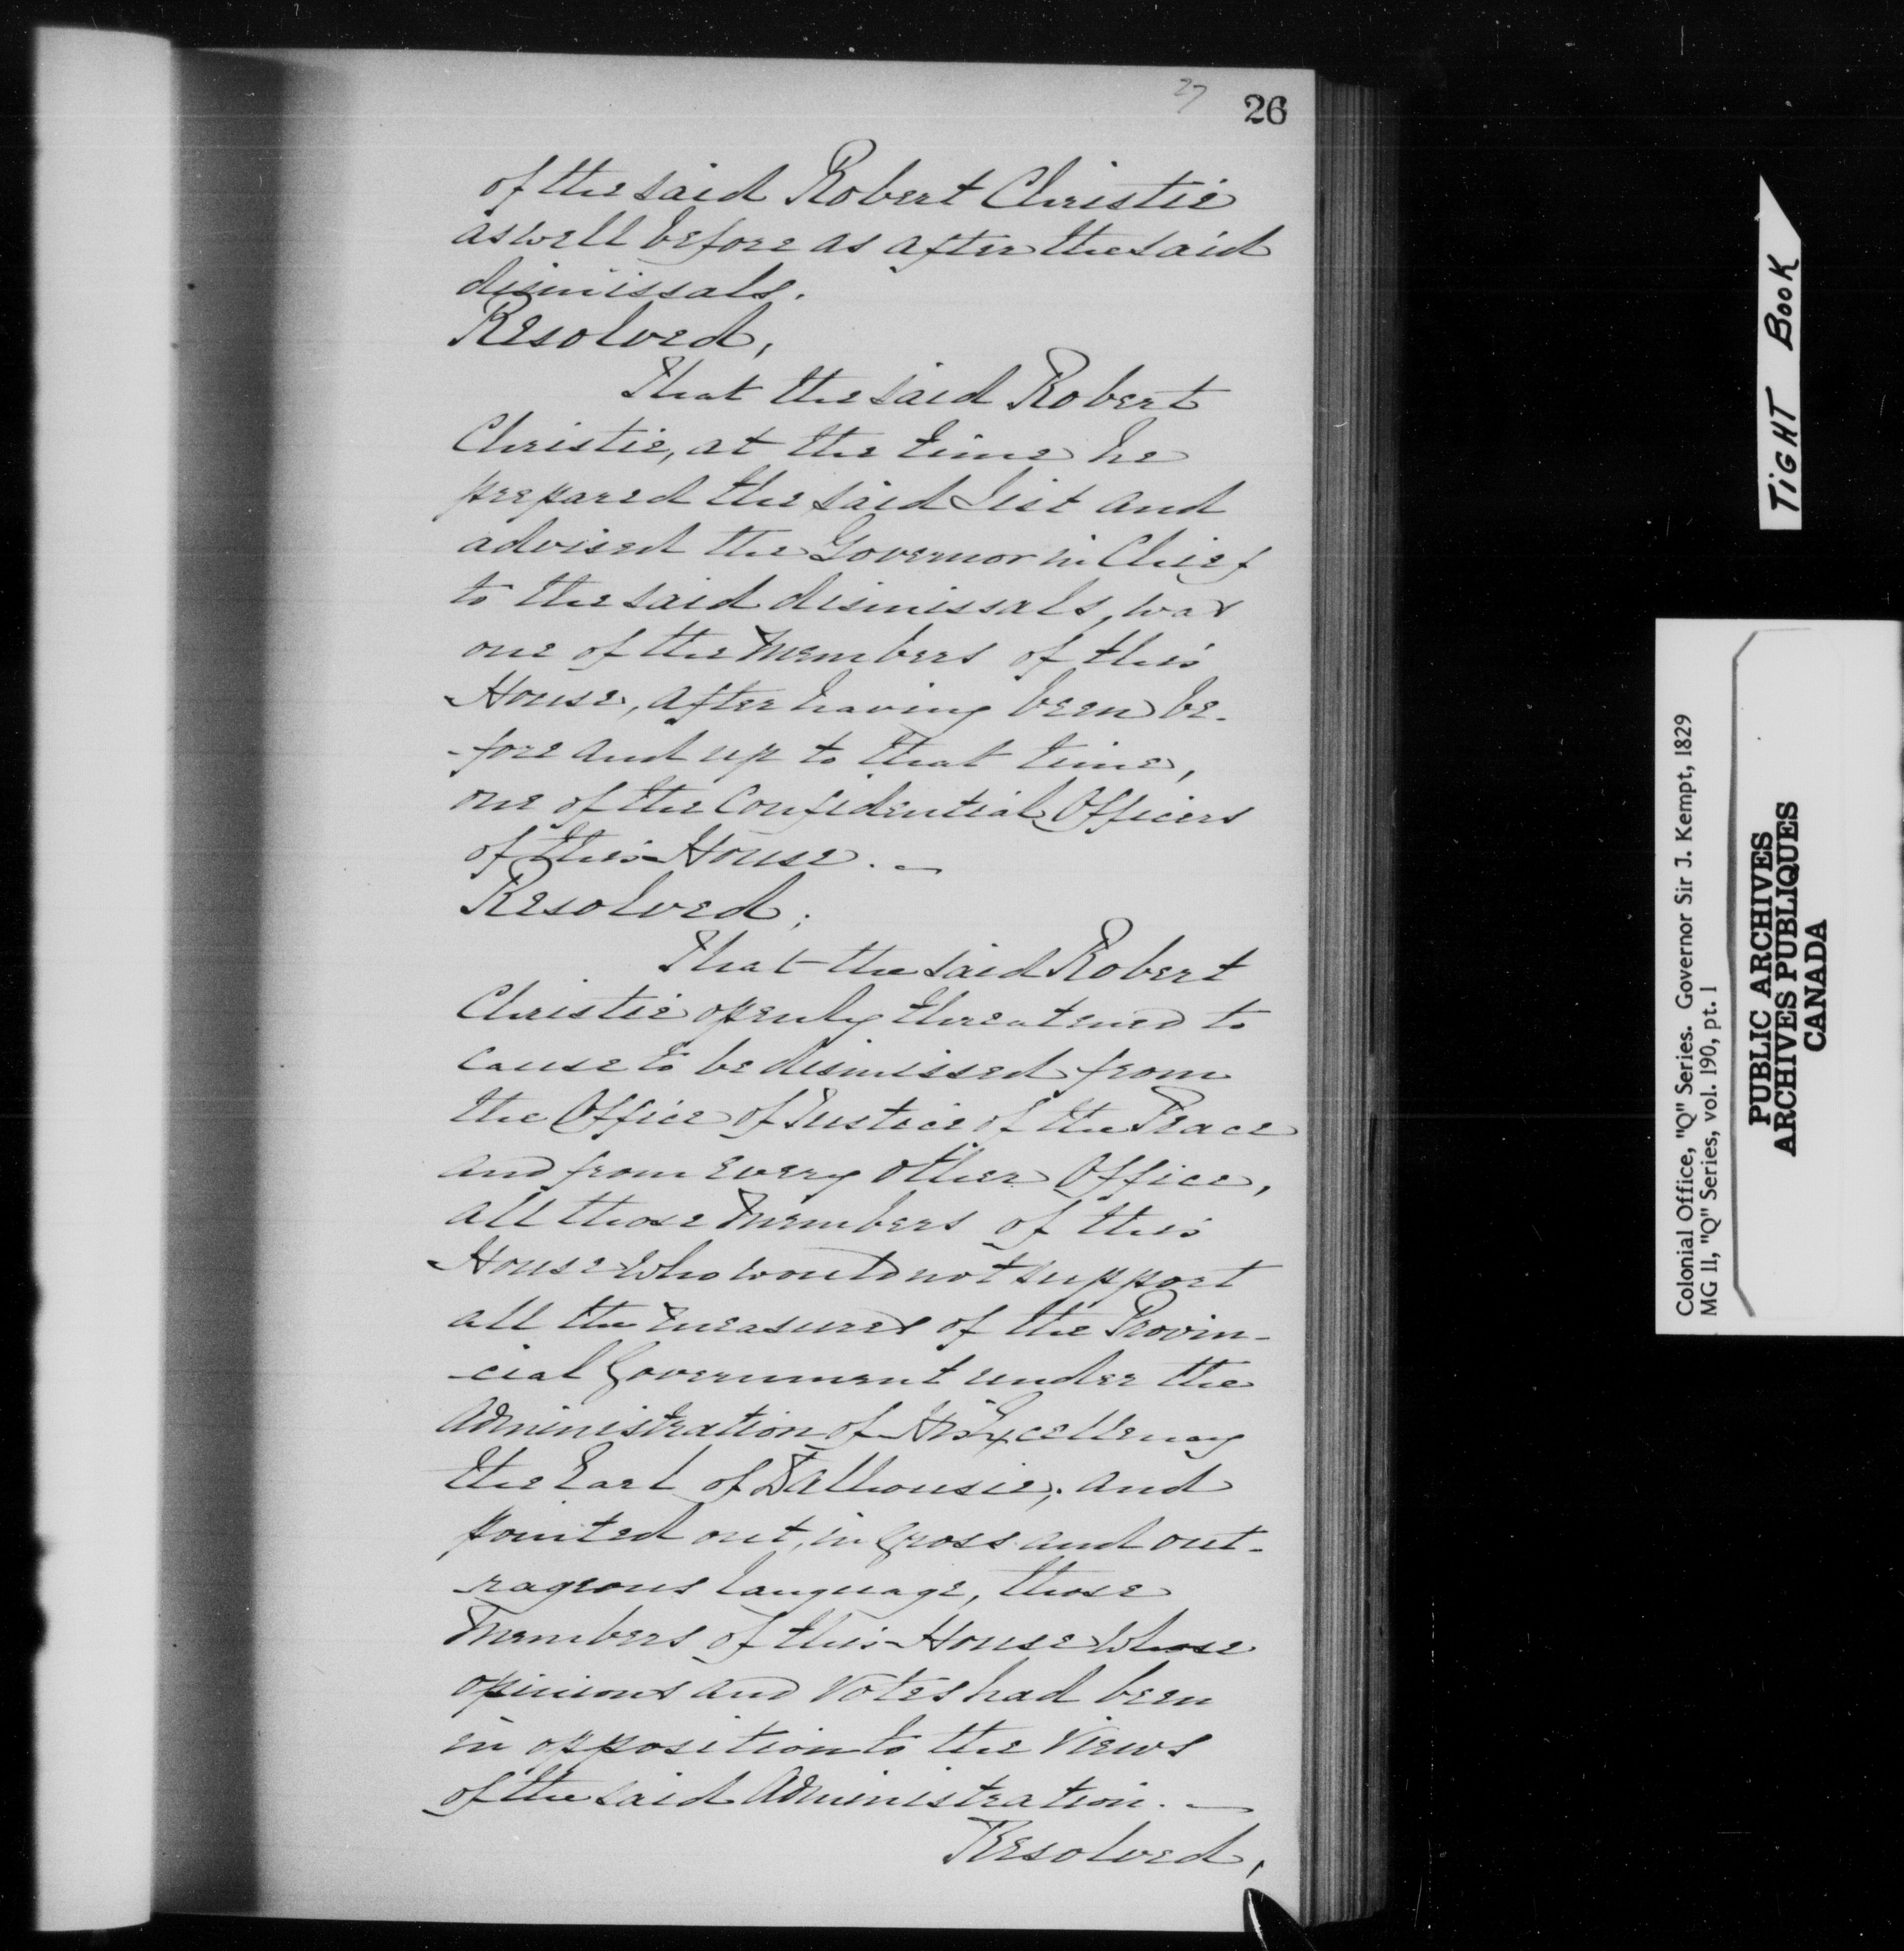 27
26
of the said Robert Christie
as well before as after the said
dismissals.
Resolved,
That the said Robert
Christie, at the time he
prepared the said List and
advised the Governor in Chief
to the said dismissals, was
one of the Members of this
House, after having been be-
-fore and up to that time,
one of the Confidential Officers
of this House. _
Resolved,
That the said Robert
Christie openly threatened to
cause to be dismissed from
the Office of Justice of the Peace
and from every other Office,
all those Members of this
House who would not support
all the measures of the Provin-
-cial Government under the
Administration of His Excellency
the Earl of Dalhousie; and
pointed out, in gross and out-
-rageous language, those
Members of this House whose
opinions and votes had been
in opposition to the views
of the said Administration. _
Resolved,
TIGHT BOOK
Colonial Office, "Q" Series. Governor Sir J. Kempt, 1829
MG 11, "Q" Series, vol. 190, pt. 1
PUBLIC ARCHIVES
ARCHIVES PUBLIQUES
CANADA